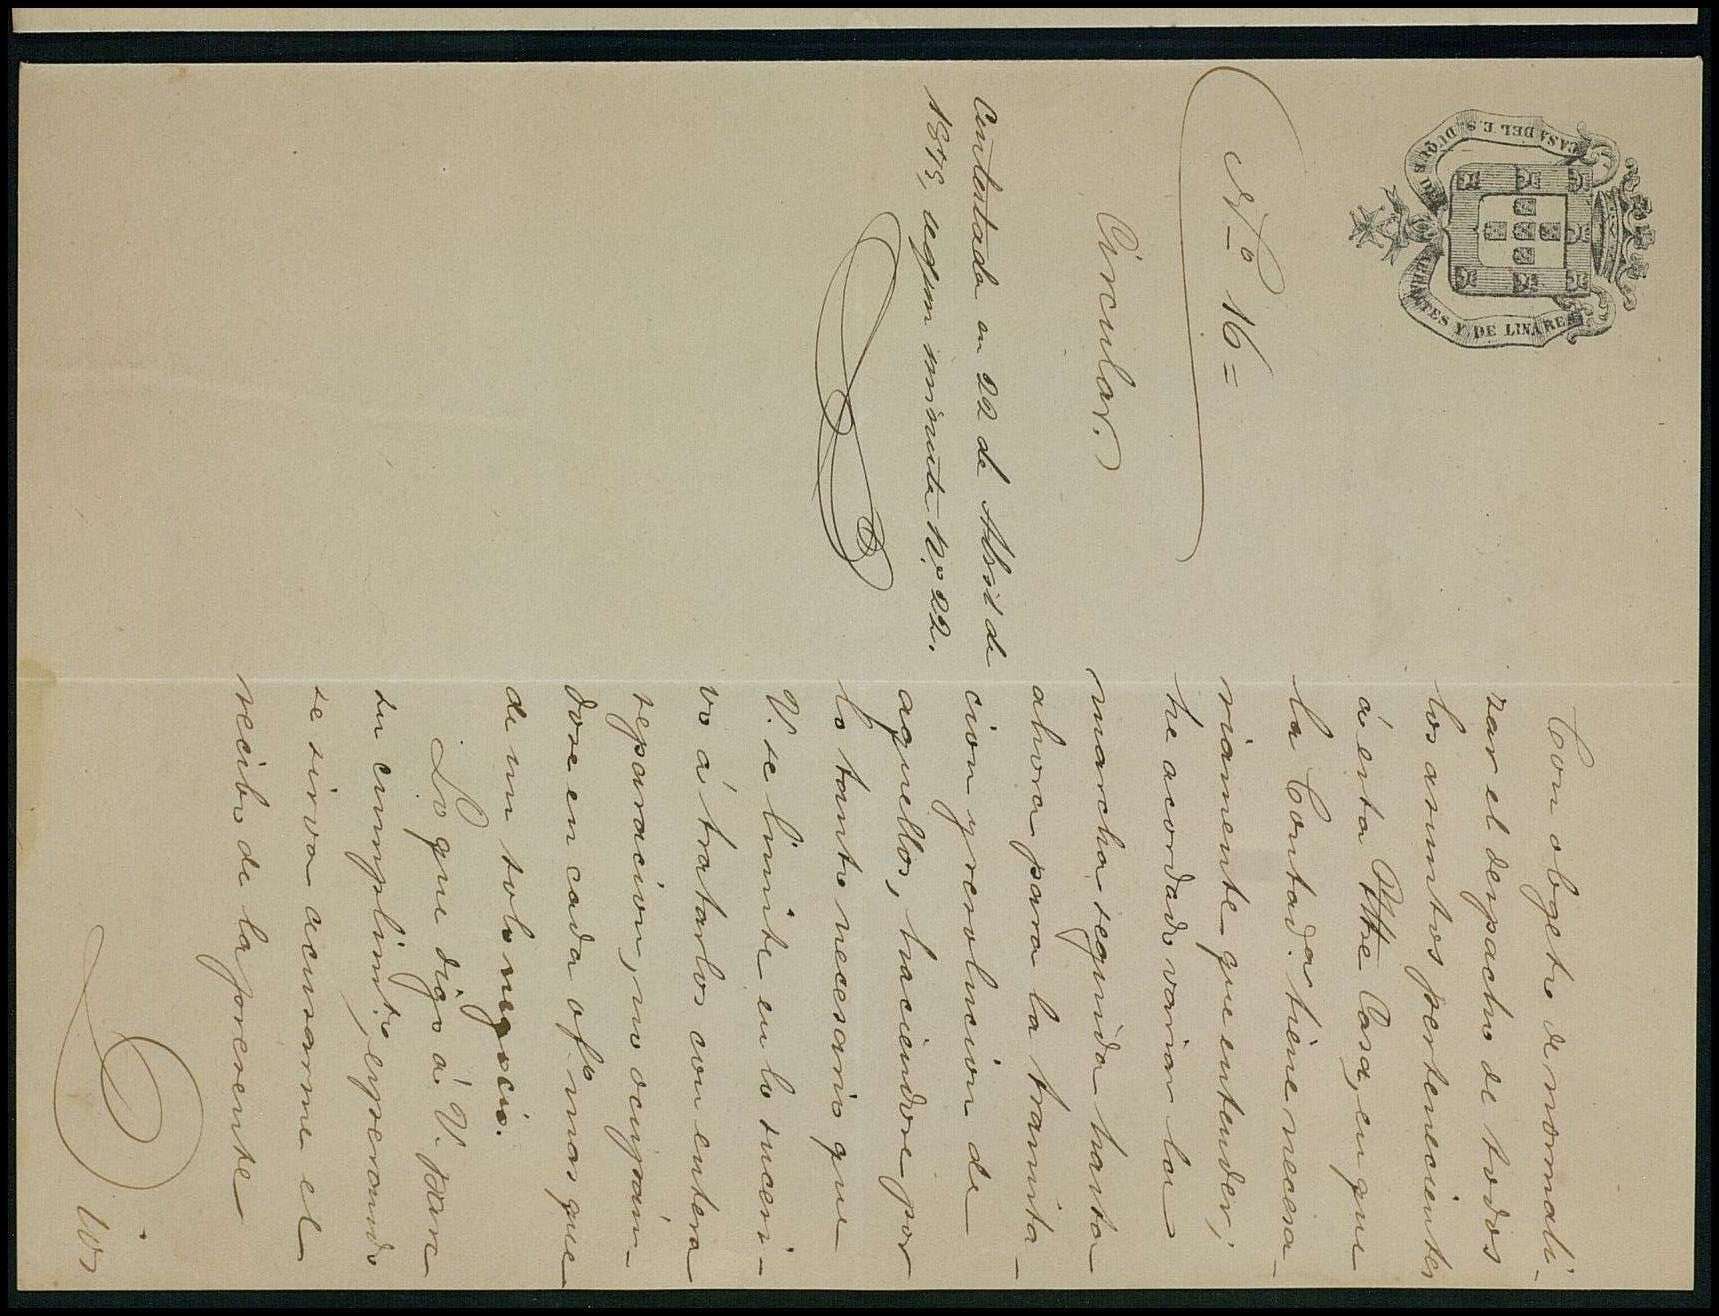 CASA DEL E. S. DUQUE DE
FUENTES Y DE LINARES
Nº 16=
Circular.
Contestada en 22 de Abril de
1873, segun minuta Nº 22.
Con obgeto de normali-
zar el despacho de todos
los asuntos pertenecientes
á esta Iltre Casa, en que
la Contadª tiene necesa-
riamente que entender,
he acordado variar la
marcha seguida hasta
ahora para la tramita-
cion y resolucion de
aquellos, haciendose por
lo tanto necesario que
V. se limite en lo sucesi-
vo á tratarlos con entera
separacion, no ocupan-
dose en cada ofº mas que
de un solo negocio.
Lo que digo á V. para
su cumplimtº, esperando
se sirva acusarme el
recibo de la presente
Dios